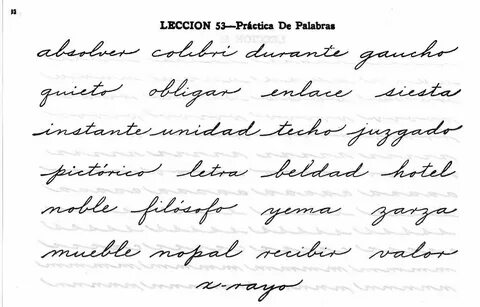 12
LECCION 53—Práctica De Palabras
absolver colibrí durante gaucho
quieto obligar enlace siesta
instante unidad techo juzgado
pictórico letra beldad hotel
noble filósofo yema zarza
mueble nopal recibir valor
x-rayo